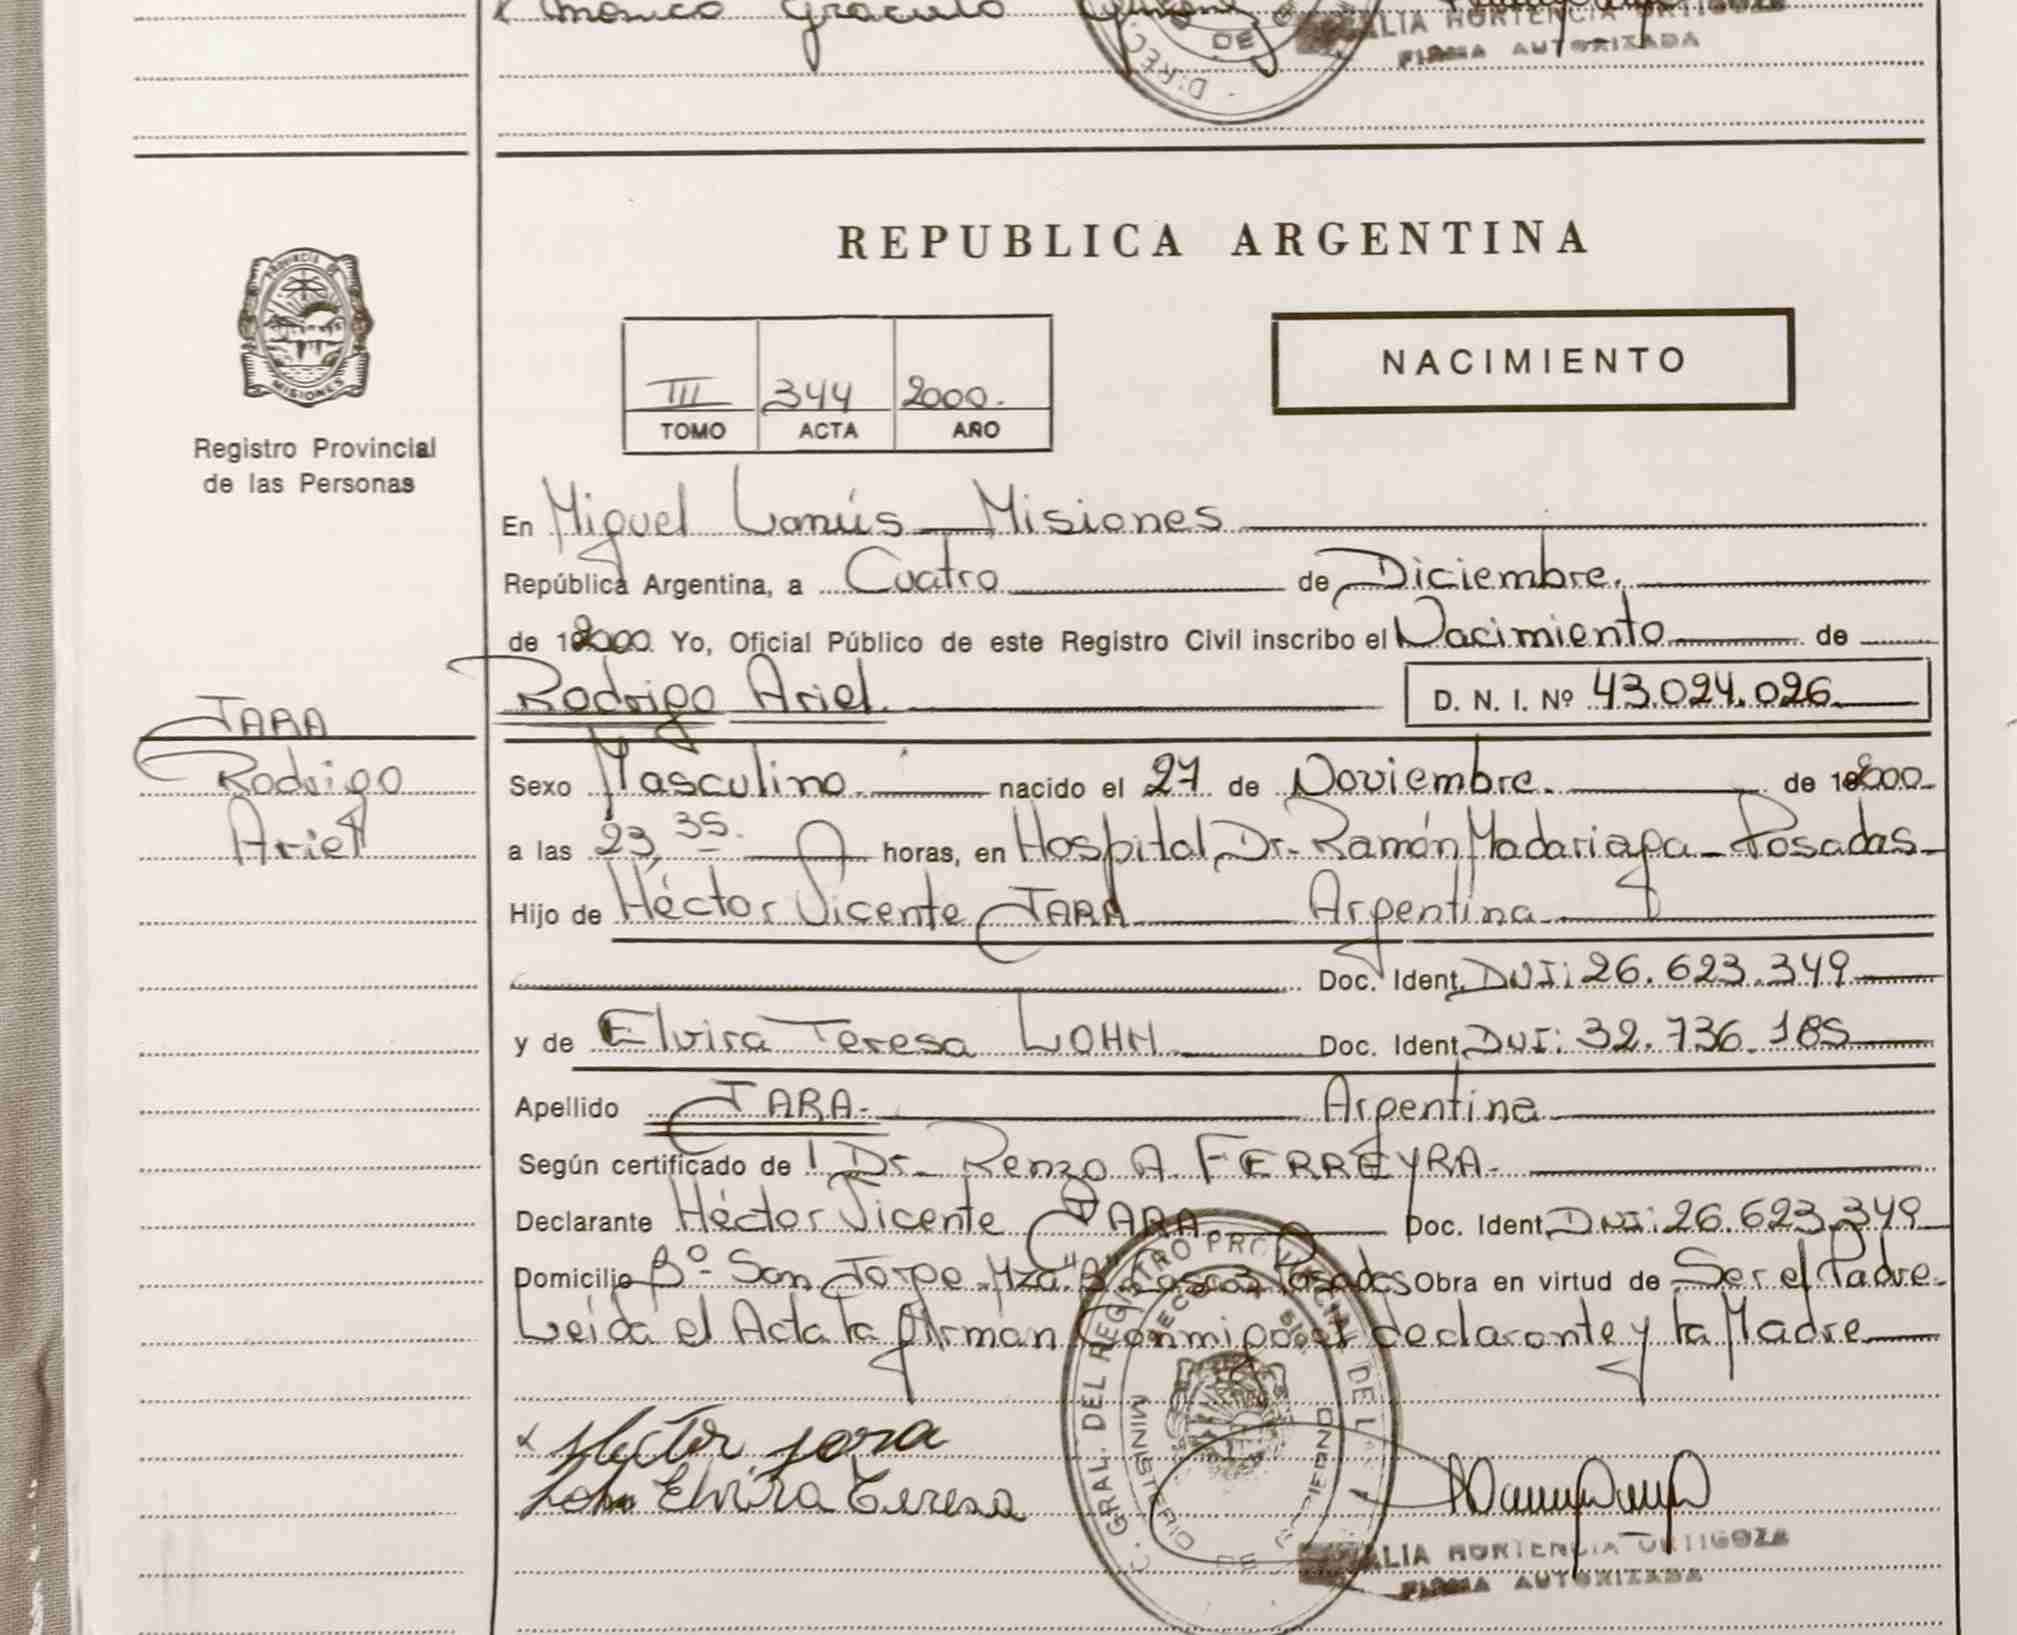 Mónico Graciela
DIREC DE
ALIA HORTENCIA ORTIGOZA
FIRMA AUTORIZADA
PROVINCIA DE
MISIONES
Registro Provincial
de las Personas
REPUBLICA ARGENTINA
III 344 2000.
TOMO ACTA AÑO
NACIMIENTO
En Miguel Lanús - Misiones
República Argentina, a Cuatro de Diciembre.
de 2000 Yo, Oficial Público de este Registro Civil inscribo el Nacimiento de
Rodrigo Ariel. D. N. I. Nº 43.024.026.
JARA
Rodrigo
Ariel
Sexo Masculino. nacido el 27 de Noviembre. de 2000
a las 23,35. horas, en Hospital Dr. Ramón Madariaga - Posadas
Hijo de Héctor Vicente JARA Argentina
Doc. Ident. DNI: 26.623.349
y de Elvira Teresa LOHN Doc. Ident. DNI: 32.736.185
Apellido JARA- Argentina
Según certificado de Dr. Renzo A. FERREYRA-
Declarante Héctor Vicente JARA Doc. Ident. DNI: 26.623.349
Domicilio Bº San Jorge Mza "B" Casa Posadas Obra en virtud de Ser el Padre
Leída el Acta la firman Conmigo el declarante y la Madre
x Hector Jara
Lohn Elvira Teresa
GRAL. DEL REGISTRO PROVINCIAL DE LAS
MINISTERIO DE GOBIERNO
ALIA HORTENCIA ORTIGOZA
FIRMA AUTORIZADA